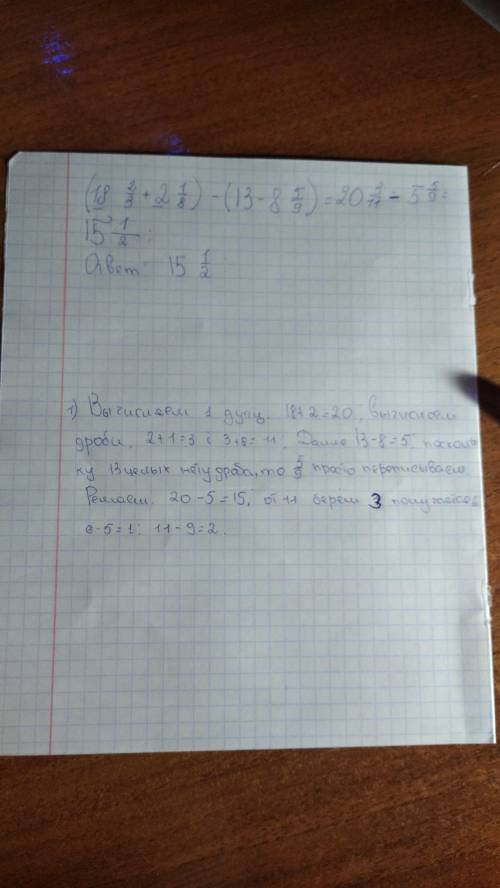 (18 2/3 + 2 1/8) - (13 - 8 5/9) = 20 3/11 - 5 5/9 =
15 1/2;
Ответ: 15 1/2
1) Вычисляем 1 дугц. 18+2=20, вычислем
дроби. 2+1=3 и 3+8=11; Далее 13-8=5, поскольк
ку 13 целых нету дроба, то 5/9 просто переписываем
Решаем. 20-5=15, от 11 берем 3 получается
6-5=1; 11-9=2.